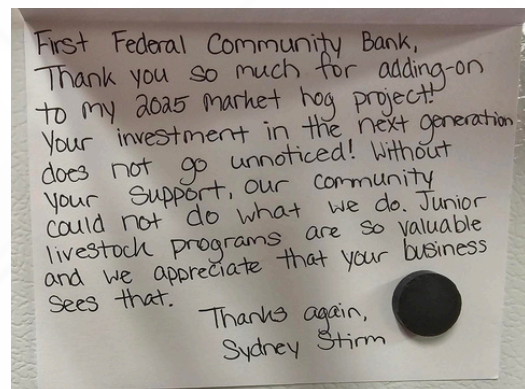 First Federal Community Bank,
Thank you so much for adding-on
to my 2025 market hog project!
Your investment in the next generation
does not go unnoticed! Without
your support, our community
could not do what we do. Junior
livestock programs are so valuable
and we appreciate that your business
sees that.
Thanks again,
Sydney Stirm